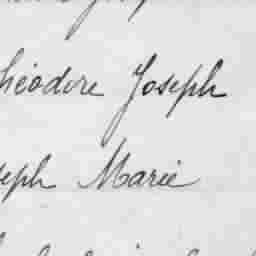 héodore Joseph
seph Marie